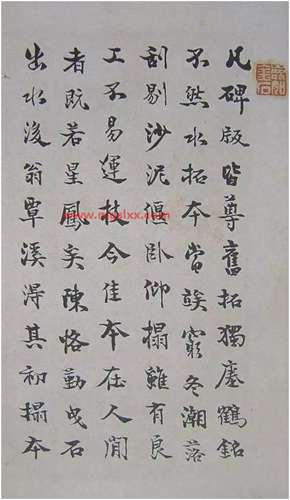 凡碑版皆尊舊拓獨瘞鶴銘
不然水拓本嘗歎窮冬潮落
刮剔沙泥偃卧仰搨雖有良
工不易運技今佳本在人間
者既若星鳳矣陳恪勤曳石
出水後翁覃溪得其初搨本